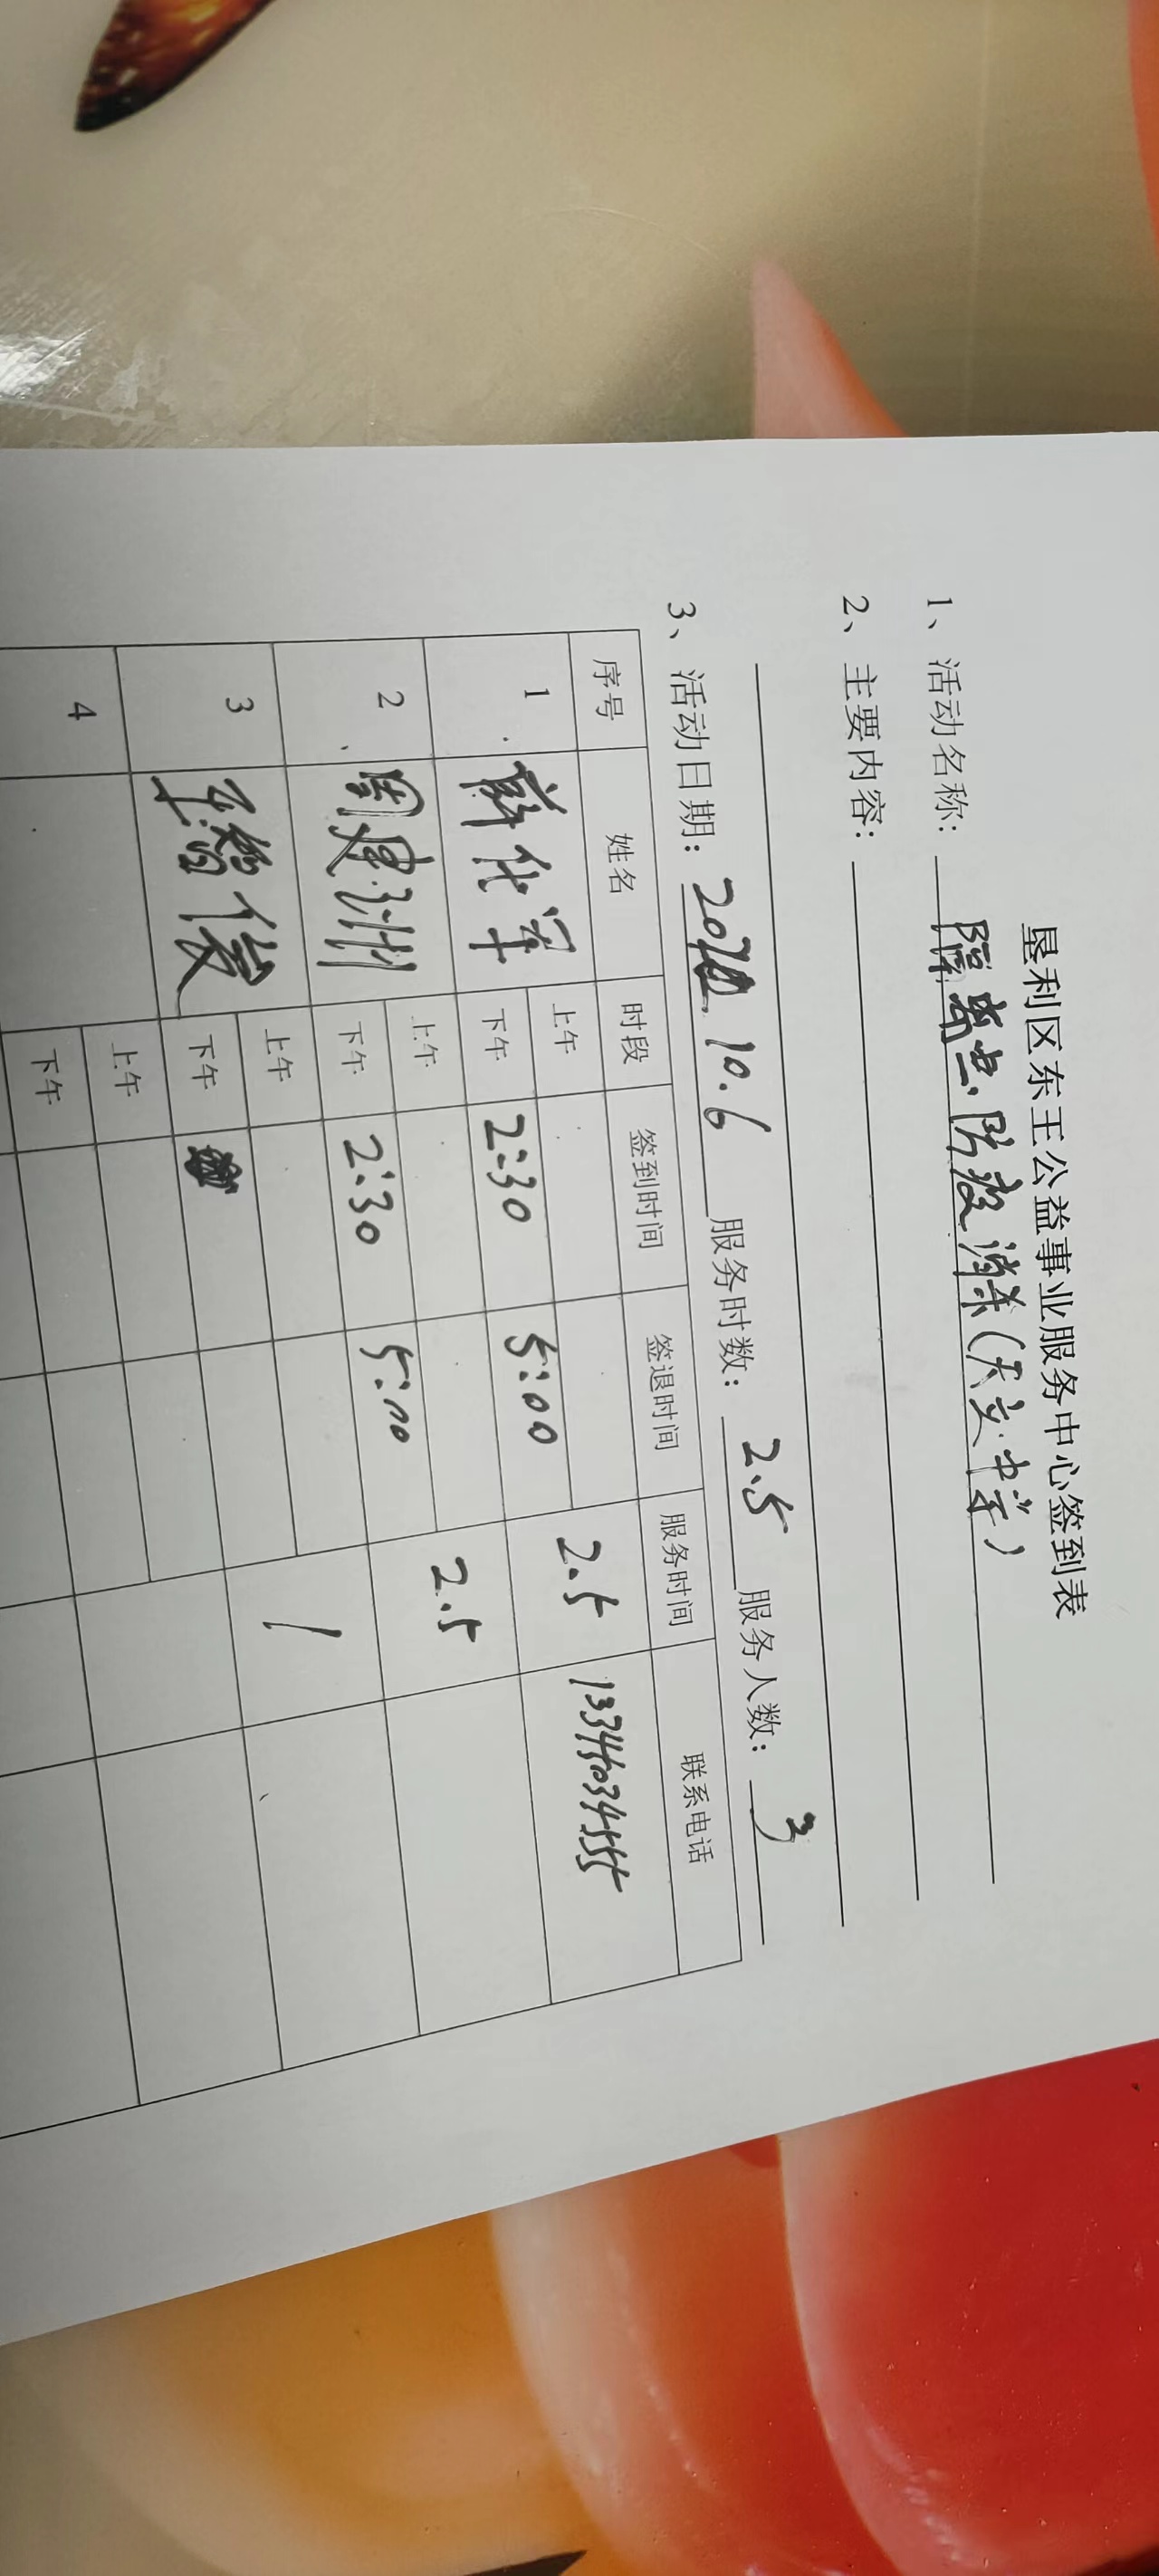 垦利区东王公益事业服务中心签到表
1、活动名称: 防疫消杀(天立中学)
2、主要内容:
3、活动日期: 10.6 服务时数: 2.5 服务人数: 3
序号 姓名 时段 签到时间 签退时间 服务时间 联系电话
1 薛化军 上午 2.5
下午 2:30 5:00
2 周建洲 上午 2.5
下午 2:30 5:00
3 上午 1
下午
4 上午
下午